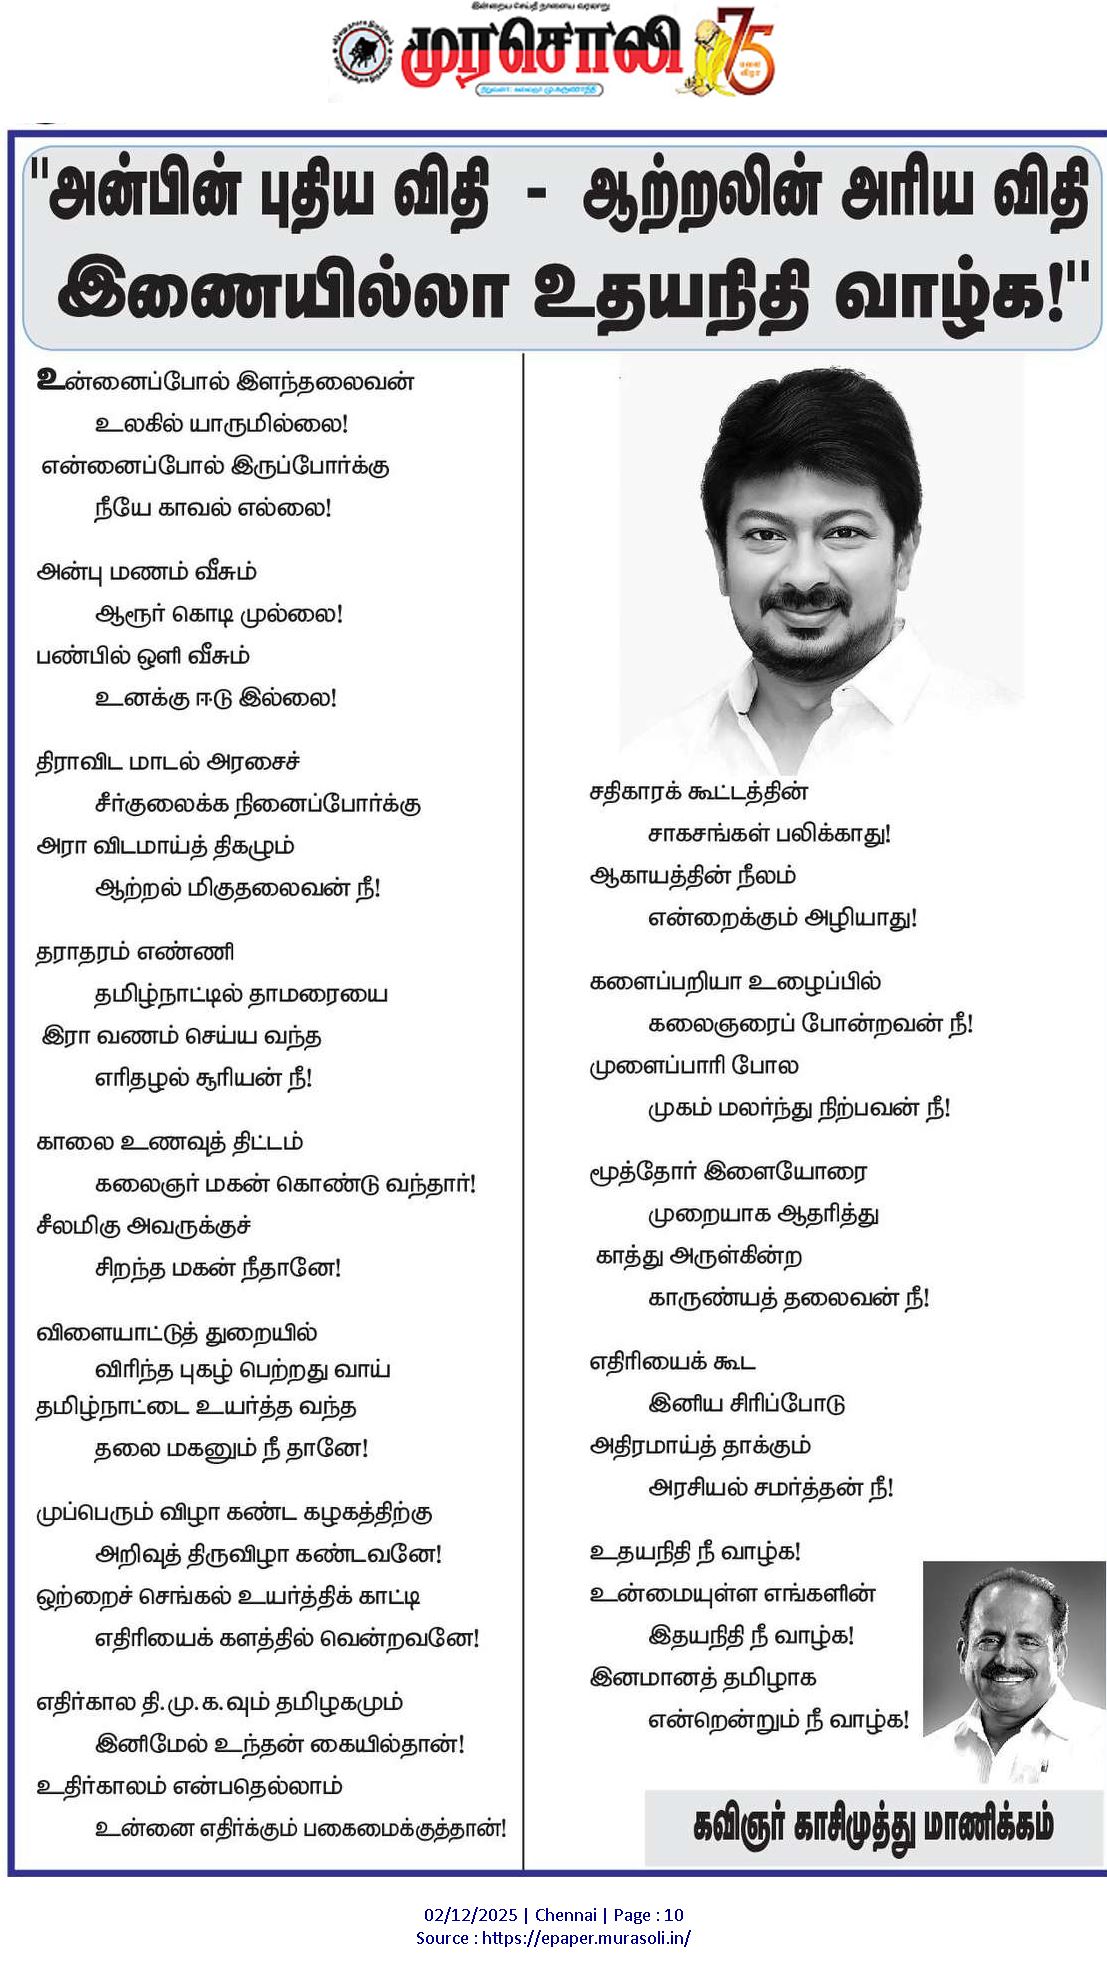 இன்றைய செய்தி நாளைய வரலாறு
முரசொலி 75
பவள விழா
நிறுவனர்: கலைஞர் மு.கருணாநிதி
"அன்பின் புதிய விதி - ஆற்றலின் அரிய விதி
இணையில்லா உதயநிதி வாழ்க!"
உன்னைப்போல் இளந்தலைவன்
உலகில் யாருமில்லை!
என்னைப்போல் இருப்போர்க்கு
நீயே காவல் எல்லை!
அன்பு மணம் வீசும்
ஆரூர் கொடி முல்லை!
பண்பில் ஒளி வீசும்
உனக்கு ஈடு இல்லை!
திராவிட மாடல் அரசைச்
சீர்குலைக்க நினைப்போர்க்கு
அரா விடமாய்த் திகழும்
ஆற்றல் மிகுதலைவன் நீ!
தராதரம் எண்ணி
தமிழ்நாட்டில் தாமரையை
இரா வணம் செய்ய வந்த
எரிதழல் சூரியன் நீ!
காலை உணவுத் திட்டம்
கலைஞர் மகன் கொண்டு வந்தார்!
சீலமிகு அவருக்குச்
சிறந்த மகன் நீதானே!
விளையாட்டுத் துறையில்
விரிந்த புகழ் பெற்றது வாய்
தமிழ்நாட்டை உயர்த்த வந்த
தலை மகனும் நீ தானே!
முப்பெரும் விழா கண்ட கழகத்திற்கு
அறிவுத் திருவிழா கண்டவனே!
ஒற்றைச் செங்கல் உயர்த்திக் காட்டி
எதிரியைக் களத்தில் வென்றவனே!
எதிர்கால தி.மு.க.வும் தமிழகமும்
இனிமேல் உந்தன் கையில்தான்!
உதிர்காலம் என்பதெல்லாம்
உன்னை எதிர்க்கும் பகைமைக்குத்தான்!
சதிகாரக் கூட்டத்தின்
சாகசங்கள் பலிக்காது!
ஆகாயத்தின் நீலம்
என்றைக்கும் அழியாது!
களைப்பறியா உழைப்பில்
கலைஞரைப் போன்றவன் நீ!
முளைப்பாரி போல
முகம் மலர்ந்து நிற்பவன் நீ!
மூத்தோர் இளையோரை
முறையாக ஆதரித்து
காத்து அருள்கின்ற
காருண்யத் தலைவன் நீ!
எதிரியைக் கூட
இனிய சிரிப்போடு
அதிரமாய்த் தாக்கும்
அரசியல் சமர்த்தன் நீ!
உதயநிதி நீ வாழ்க!
உன்மையுள்ள எங்களின்
இதயநிதி நீ வாழ்க!
இனமானத் தமிழாக
என்றென்றும் நீ வாழ்க!
கவிஞர் காசிமுத்து மாணிக்கம்
02/12/2025 | Chennai | Page : 10
Source : https://epaper.murasoli.in/